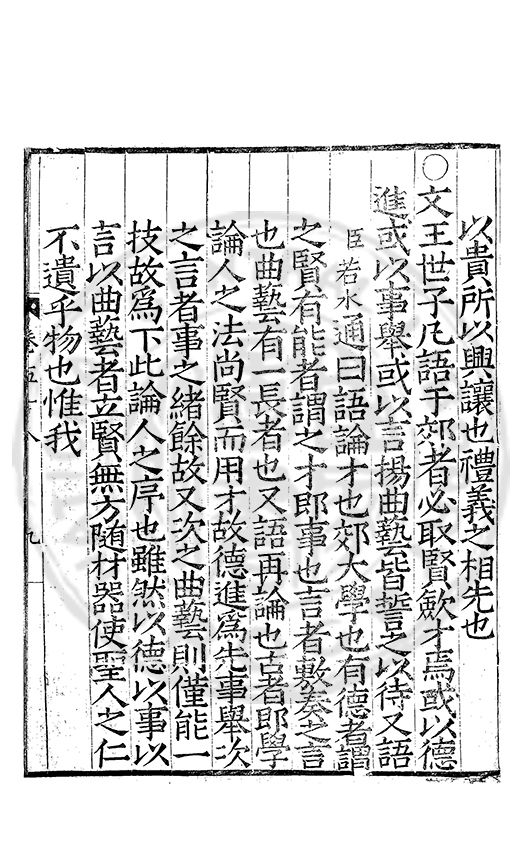 以貴所以興讓也禮義之相先也
○文王世子凡語于郊者必取賢斂才焉或以德
進或以事舉或以言揚曲藝皆誓之以待又語
臣若水通曰語論才也郊大學也有德者謂
之賢有能者謂之才即事也言者敷奏之言
也曲藝有一長者也又語再論也古者即學
論人之法尚賢而用才故德進爲先事舉次
之言者事之緒餘故又次之曲藝則僅能一
技故爲下此論人之序也雖然以德以事以
言以曲藝者立賢無方随材器使聖人之仁
不遺乎物也惟我
卷五十八
九